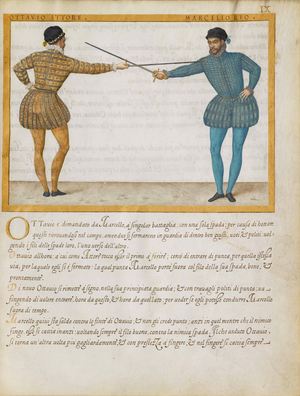 IX
OTTAVIO ETTORE.
MARCELLO RIO.
OTTavio e domandato da Marcello, a singolar battaglia: con una sola spada: per causa di honore
questi ritrovandosi nel campo, amendue si fermareno in guardia di dentro ben giusti, uniti, & politi: vol-
gendo i fili delle spade loro, l'uno verso dell'altro.
Ottavio allhora: a cui come Attore tocca esser il primo a ferire, come di entrare di punta, per quella istessa
via, per la quale egli si è fermato: la qual punta Marcello porta fuora col filo della sua spada, bene, &
prontamente.
Di novo Ottavio si rimette a segno, nella sua principiata guardia: & con travagli politi di punta: va
fingendo di volere entrare, hora da questo, & hora da quel lato: per veder se egli potesse condurre Marcello
fuora di tempo.
Marcello quivi stà saldo contra le finte di Ottavio & non gli crede punto: anzi in quel mentre che il nimico
finge, esso si caccia inanti: voltando sempre il filo buono, contra la nimica spada. Il che veduto Ottavio,
si torna un'altra volta pur gagliardamente, & con prestezza a fingere, & nel finger si caccia sempre